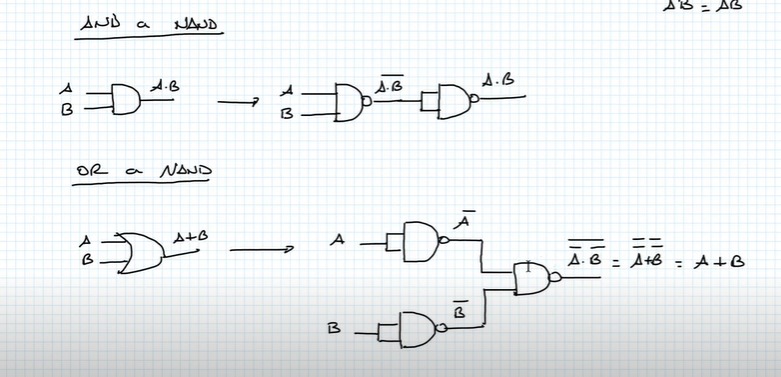 A̅B̅ = AB
AND a NAND
A
B
A.B
A
B
A͞.͞B
A.B
OR a NAND
A
B
A+B
A
A̅
B
B̅
A̿ . B̿ = A̿+B̿ = A+B